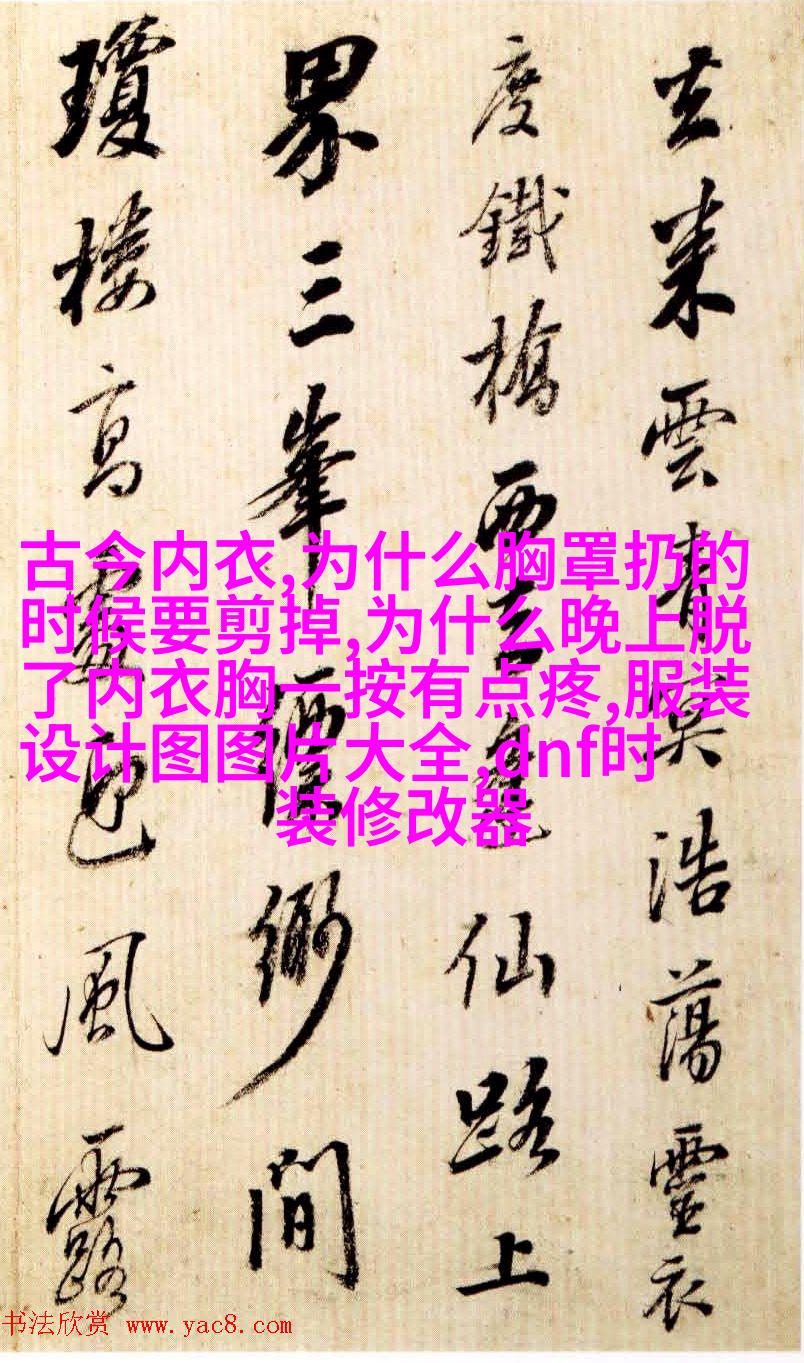 去来雲青冥浩蕩靈衣
度鐵橋西仙路上
界三峯縹緲間
瓊樓高處迥風露
古今内衣,为什么胸罩扔的
时候要剪掉,为什么晚上脱
了内衣胸一按有点疼,服装
设计图图片大全,dnf时
装修改器
书法欣赏 www.yac8.com